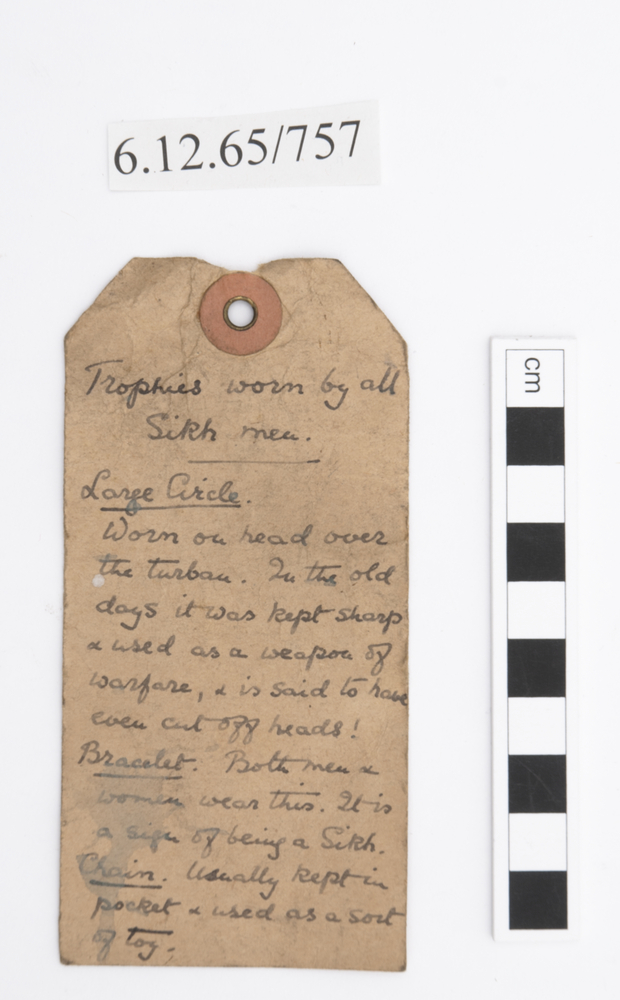 6.12.65/757
cm
Trophies worn by all
Sikh men.
Large Circle.
Worn on head over
the turban. In the old
days it was kept sharp
& used as a weapon of
warfare, & is said to have
even cut off heads!
Bracelet. Both men &
women wear this. It is
a sign of being a Sikh.
Chain. Usually kept in
pocket & used as a sort
of toy.